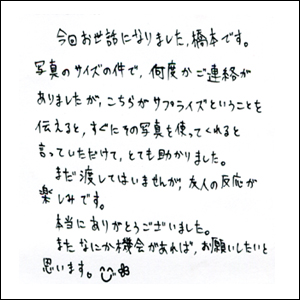 今回お世話になりました,橋本です。
写真のサイズの件で,何度かご連絡が
ありましたが,こちらがサプライズということを
伝えると,すぐにその写真を使ってくれると
言っていただけて,とても助かりました。
まだ渡してはいませんが,友人の反応が
楽しみです。
本当にありがとうございました。
またなにか機会があれば,お願いしたいと
思います。